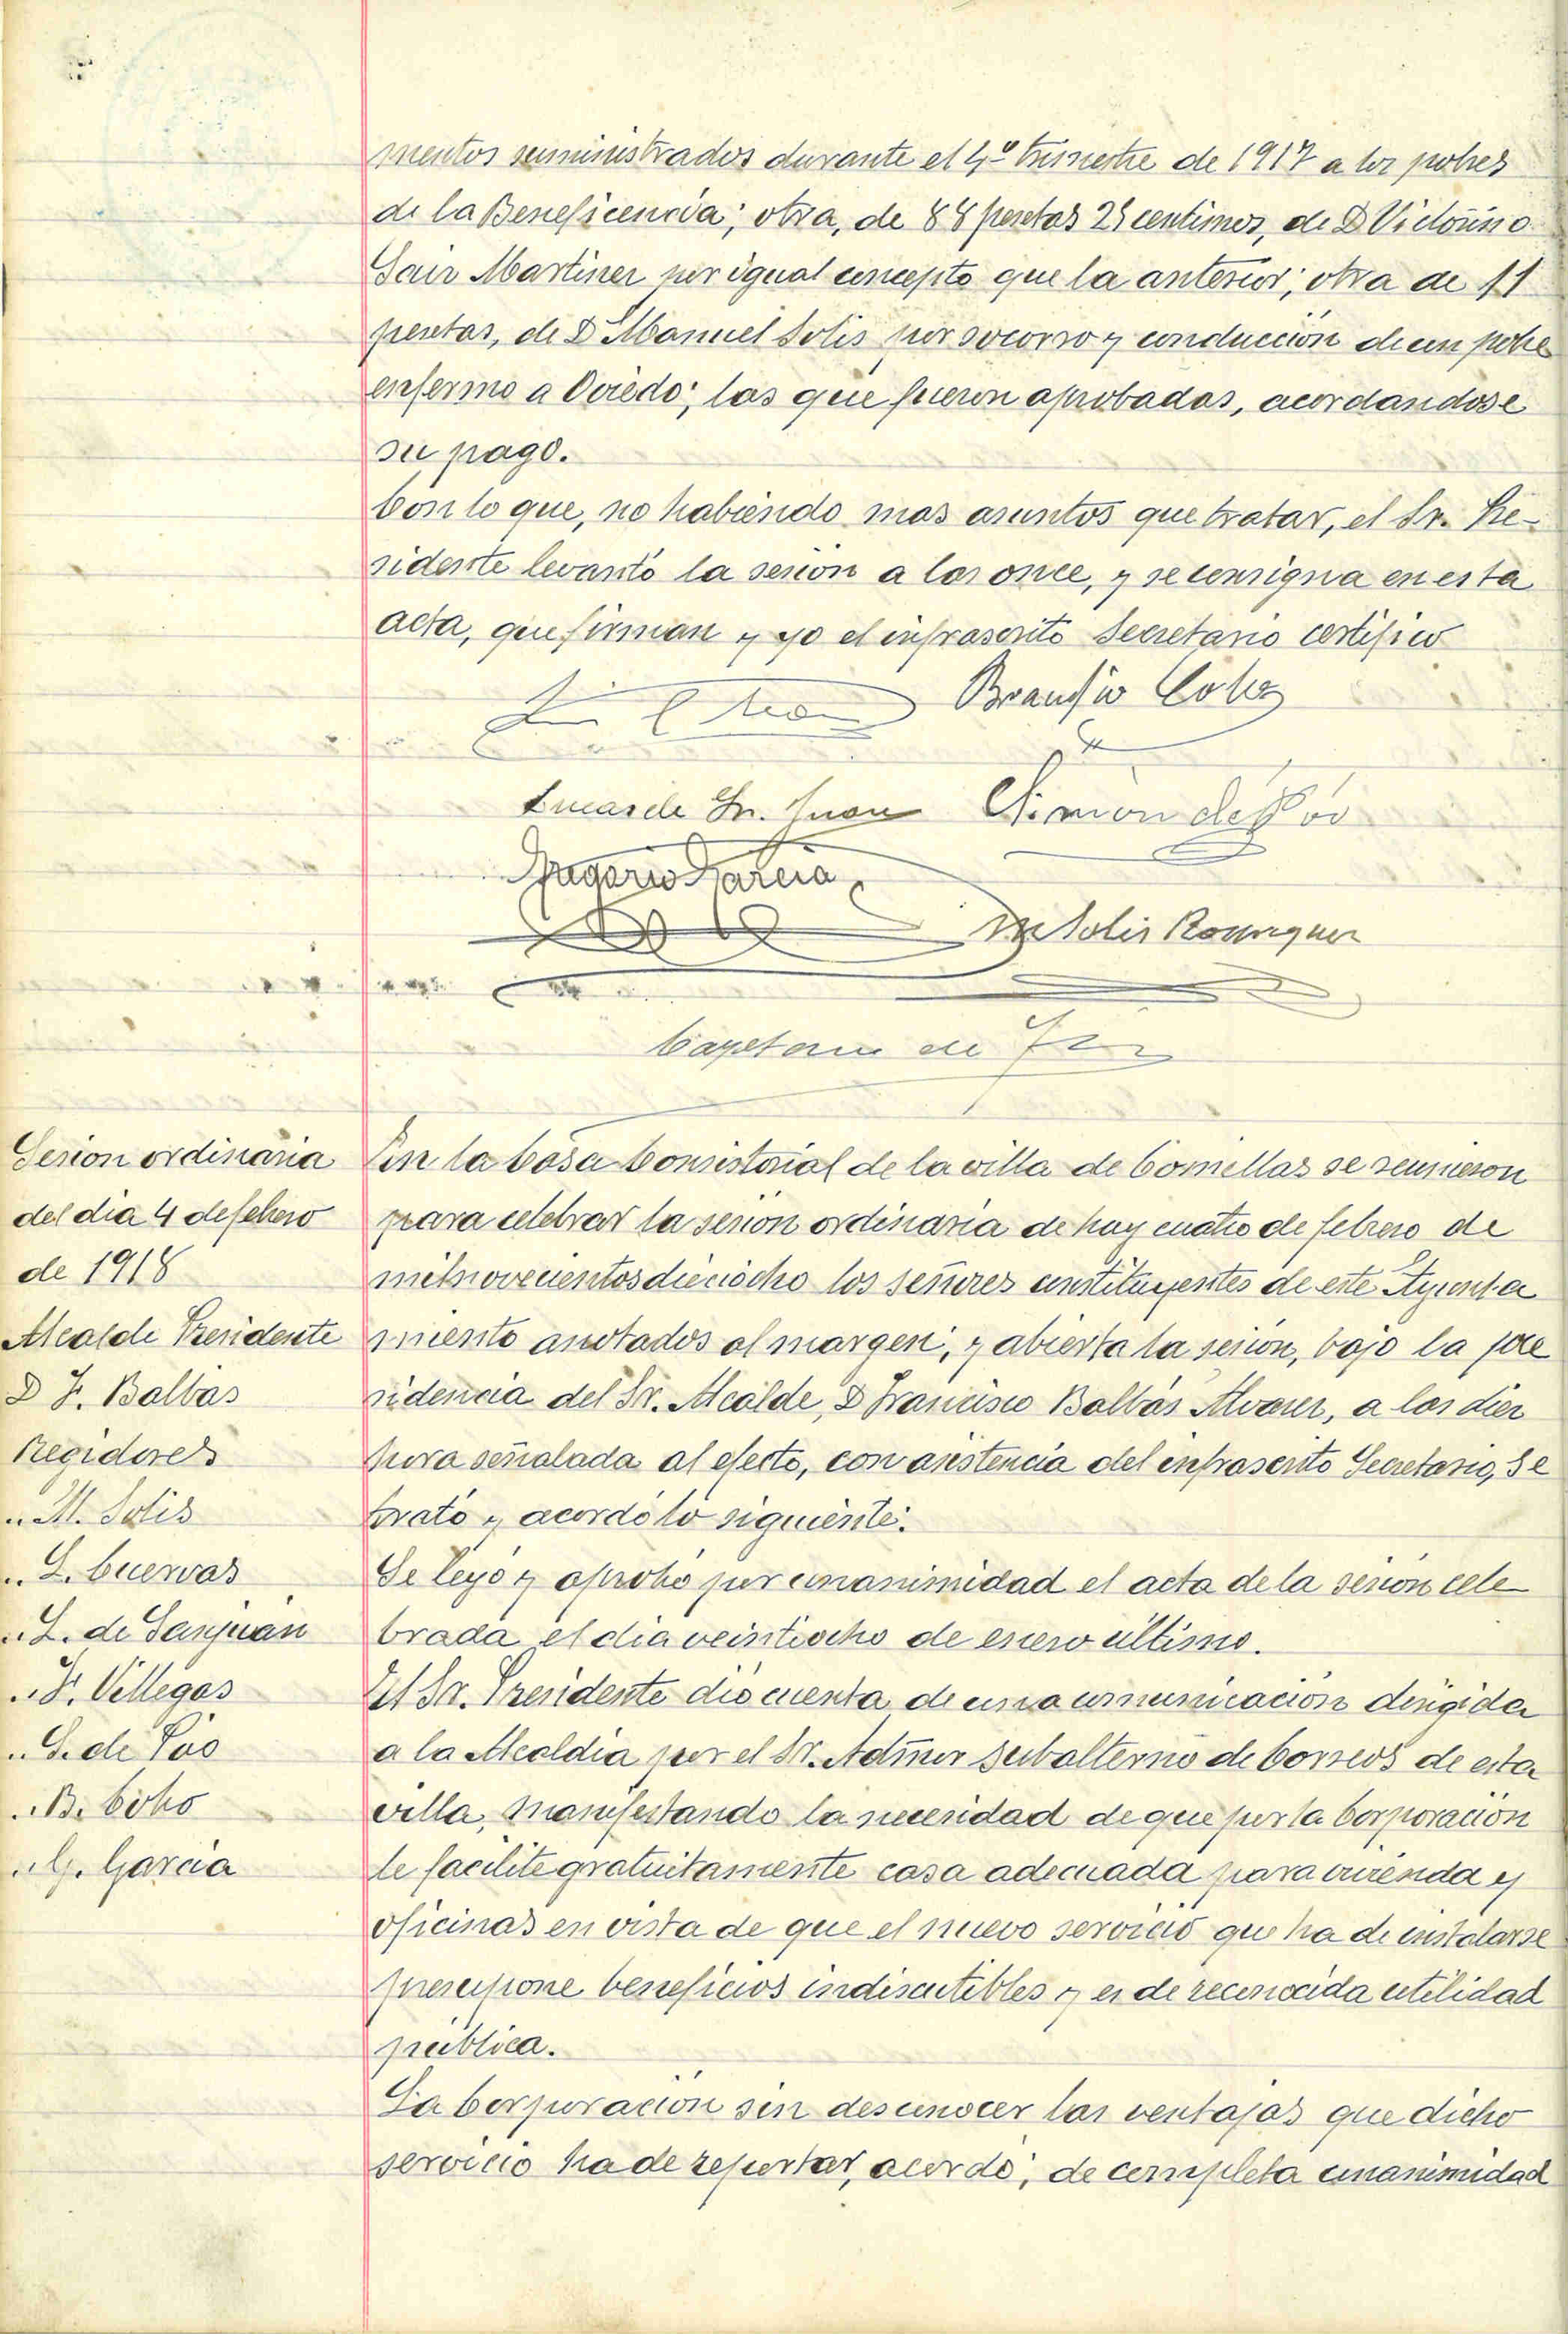 mentos suministrados durante el 4º trimestre de 1917 a los pobres
de la Beneficencia; otra, de 88 pesetas 25 centimos, de D Victorino
Sainz Martinez por igual concepto que la anterior; otra de 11
pesetas, de D Manuel Solis por socorro y conduccion de un pobre
enfermo a Oviedo; las que fueron aprobadas, acordandose
su pago.
Con lo que, no habiendo mas asuntos que tratar, el Sr. Pre-
sidente levantó la sesion a las once, y se consigna en esta
acta, que firman y yo el infrascrito Secretario certifico
Braulio Cobo
Lucas de Sn. Juan Simon de Pos
Magario Garcia
M Solis Rodriguez
Cayetano de
Sesion ordinaria
del dia 4 de febrero
de 1918
Alcalde Presidente
D F. Balbas
Regidores
" M. Solis
" L. Cuervas
" L. de Sanjuan
" F. Villegas
" S. de Pos
" B. Cobo
" G. Garcia
En la Casa Consistorial de la villa de Comillas se reunieron
para celebrar la sesion ordinaria de hoy cuatro de febrero de
mil novecientos dieciocho los señores constituyentes de este Ayunta
miento anotados al margen, y abierta la sesion, bajo la pre
sidencia del Sr. Alcalde, D Francisco Balbás Alvarez, a las diez
hora señalada al efecto, con asistencia del infrascrito Secretario, se
trató y acordó lo siguiente:
Se leyó y aprobó por unanimidad el acta de la sesion cele
brada el dia veintiocho de enero ultimo.
El Sr. Presidente dio cuenta de una comunicacion dirigida
a la Alcaldia por el Sr. Admor subalterno de Correos de esta
villa, manifestando la necesidad de que por la Corporacion
le facilite gratuitamente casa adecuada para vivienda y
oficinas en vista de que el nuevo servicio que ha de instalarse
presupone beneficios indiscutibles y es de reconocida utilidad
publica.
La Corporacion sin desconocer las ventajas que dicho
servicio ha de reportar, acordó, de completa unanimidad